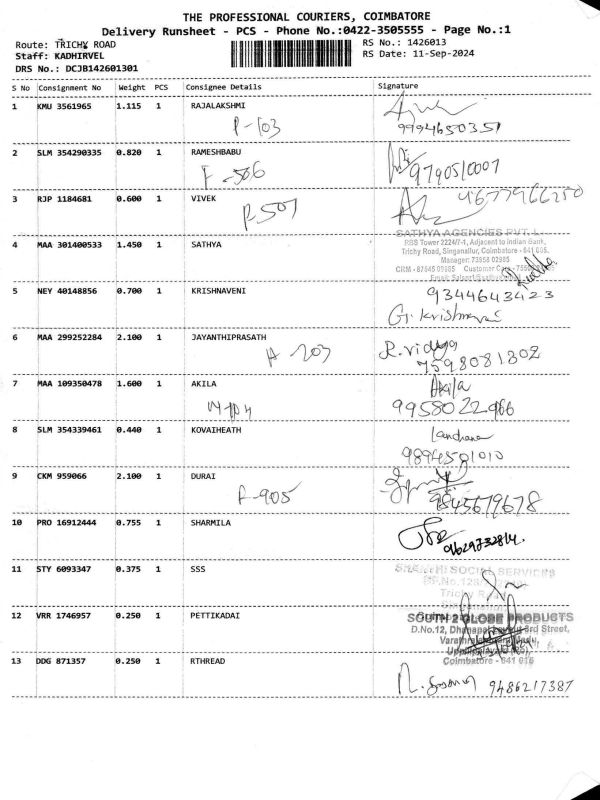 THE PROFESSIONAL COURIERS, COIMBATORE
Delivery Runsheet - PCS - Phone No.:0422-3505555 - Page No.:1
Route: TRICHY ROAD
RS No.: 1426013
Staff: KADHIRVEL
RS Date: 11-Sep-2024
DRS No.: DCJB142601301
S No Consignment No Weight PCS Consignee Details Signature
1 KMU 3561965 1.115 1 RAJALAKSHMI
P-103 9994650351
2 SLM 354290335 0.820 1 RAMESHBABU
F-506 9790510007
3 RJP 1184681 0.600 1 VIVEK
P-507
SATHYA AGENCIES PVT. L
RBS Tower 2224/7-1, Adjacent to Indian Bank,
4 MAA 301400533 1.450 1 SATHYA
Trichy Road, Singanallur, Coimbatore - 641 005.
Manager: 73958 02985
CRM - 87545 Customer Care -
5 NEY 40148856 0.700 1 KRISHNAVENI
9344643423
G. Krishnaveni
6 MAA 299252284 2.100 1 JAYANTHIPRASATH
A-203 R. vidya
7598081802
7 MAA 109350478 1.600 1 AKILA
Akila
8 SLM 354339461 0.440 1 KOVAIHEATH
9894501010
9 CKM 959066 2.100 1 DURAI
F-905 9845679678
10 PRO 16912444 0.755 1 SHARMILA
11 STY 6093347 0.375 1 SSS
SOCIAL SERVICES
Trichy Road
12 VRR 1746957 0.250 1 PETTIKADAI
SOUTH 2 GLOBE PRODUCTS
D.No.12, 3rd Street,
Coimbatore - 641 015
13 DDG 871357 0.250 1 RTHREAD
9486217387